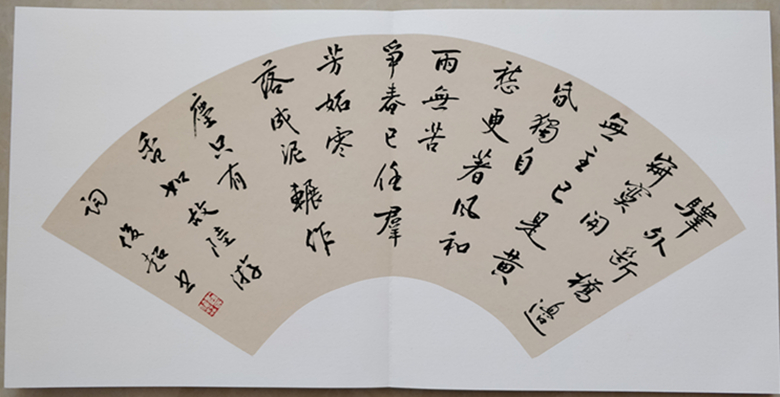 驛外斷橋邊
寂寞開
無主已是黃
昏獨自
愁更著風和
雨無苦
爭春已任羣
芳妬零
落成泥輾作
塵只有
香如故陸游
詞俊超书